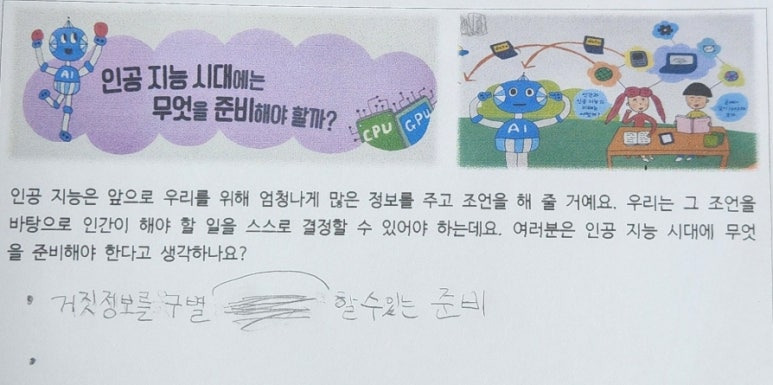 인공 지능 시대에는
무엇을 준비해야 할까?
AI
CPU
GPU
AI
인공 지능은 앞으로 우리를 위해 엄청나게 많은 정보를 주고 조언을 해 줄 거예요. 우리는 그 조언을
바탕으로 인간이 해야 할 일을 스스로 결정할 수 있어야 하는데요. 여러분은 인공 지능 시대에 무엇
을 준비해야 한다고 생각하나요?
거짓정보를 구별 할 수 있는 준비